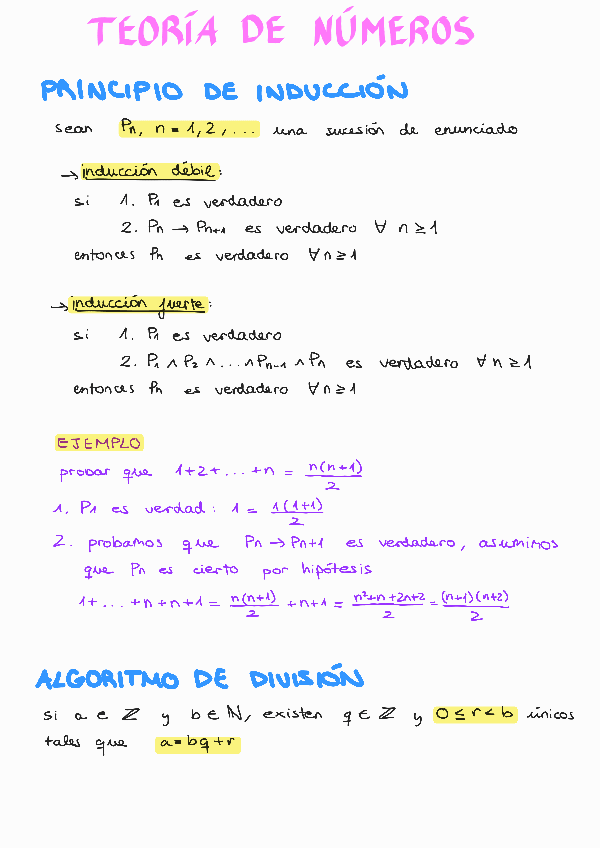 TEORÍA DE NÚMEROS
PRINCIPIO DE INDUCCIÓN
sean Pn, n = 1, 2, ... una sucesión de enunciado
→ inducción débil:
si 1. P1 es verdadero
2. Pn → Pn+1 es verdadero ∀ n ≥ 1
entonces Pn es verdadero ∀ n ≥ 1
→ inducción fuerte:
si 1. P1 es verdadero
2. P1 ∧ P2 ∧ ... ∧ Pn-1 ∧ Pn es verdadero ∀ n ≥ 1
entonces Pn es verdadero ∀ n ≥ 1
EJEMPLO
probar que 1+2+...+n = n(n+1)/2
1. P1 es verdad: 1 = 1(1+1)/2
2. probamos que Pn → Pn+1 es verdadero, asumimos
que Pn es cierto por hipótesis
1+...+n+n+1 = n(n+1)/2 +n+1 = n²+n+2n+2/2 = (n+1)(n+2)/2
ALGORITMO DE DIVISIÓN
si a ∈ ℤ y b ∈ ℕ, existen q ∈ ℤ y 0 ≤ r < b únicos
tales que a = bq + r